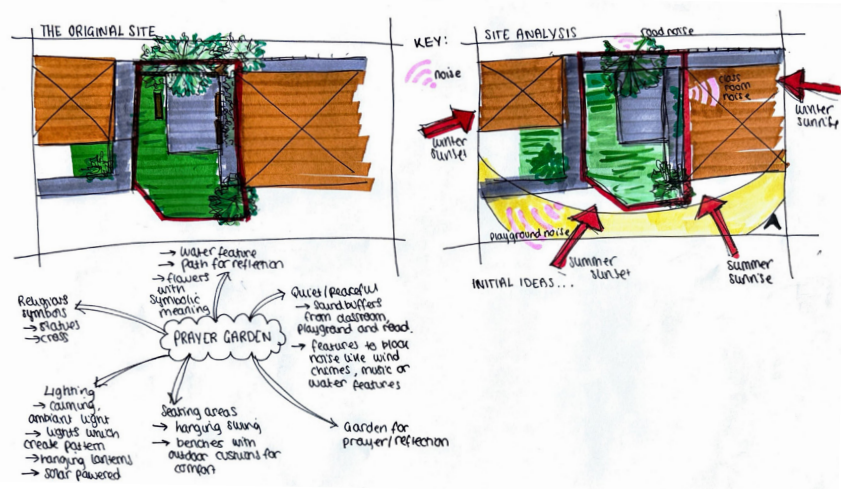 THE ORIGINAL SITE
KEY:
noise
SITE ANALYSIS
road noise
class
room
noise
winter
sunrise
winter
sunset
playground noise
summer
sunset
summer
sunrise
INITIAL IDEAS...
→ water feature
→ path for reflection
→ flowers
with
symbolic
meaning
Religious
symbols
→ statues
→ cross
PRAYER GARDEN
Quiet/peaceful
→ sound buffers
from classroom,
playground and road.
→ features to block
noise like wind
chimes, music or
water features
Lighting
→ calming,
ambient light
→ lights which
create pattern
→ hanging lanterns
→ solar powered
Seating areas
→ hanging swing
→ benches with
outdoor cushions for
comfort
Garden for
prayer/reflection